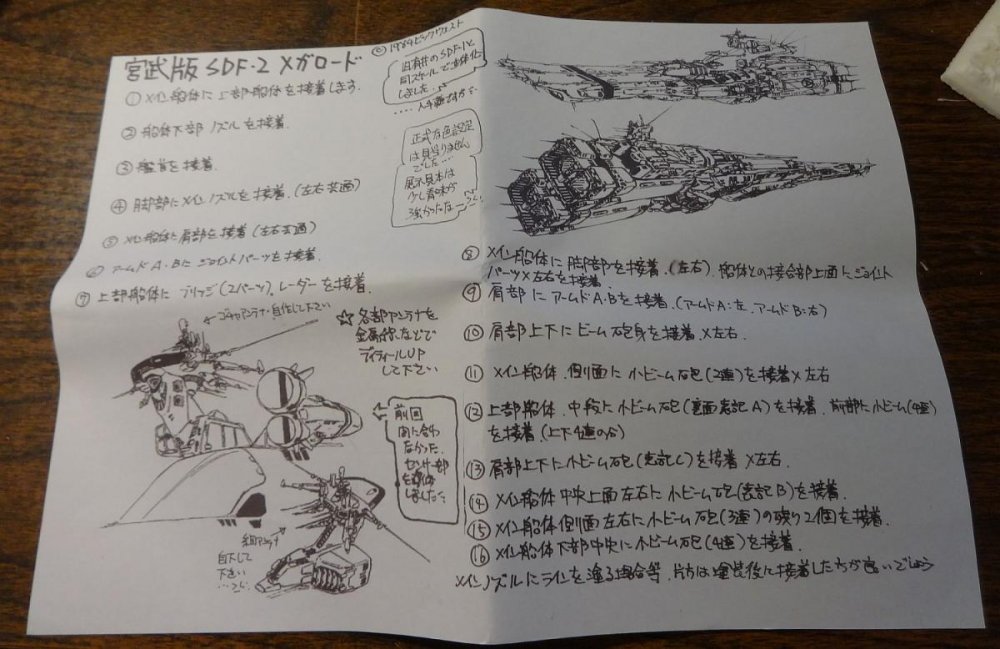 宮武版 SDF-2 メガロード
© 1984ビックウェスト
① メイン船体に上部船体を接着します.
② 船体下部ノズルを接着.
③ 艦首を接着.
④ 脚部にメインノズルを接着.(左右共通)
⑤ メイン船体に肩部を接着(左右共通)
⑥ アームドA・Bにジョイントパーツを接着.
⑦ 上部船体にブリッジ(2パーツ)。レーダーを接着.
同スケールで立体化
しました
正式な色設定
は見当りません
でした…
展示見本は
少し青味が
強かったな
←ゴチャアンテナ.自作して下さい
☆各部アンテナを
金属線などで
ディティールUP
して下さい
前回
間に合わ
なかった.
センサー部
しました.
自作して
下さい
⑧ メイン船体に脚部を接着.(左右). 船体との接合部上面にジョイント
パーツ×左右を接着.
⑨ 肩部にアームドA・Bを接着.(アームドA:左、アームドB:右)
⑩ 肩部上下にビーム砲身を接着.×左右.
⑪ メイン船体.側面に小ビーム砲(2連)を接着×左右
⑫ 上部船体.中段に小ビーム砲(裏面表記A)を接着.前部に小ビーム(4連)
を接着.(上下4連のち)
⑬ 肩部上下に小ビーム砲(表記C)を接着 ×左右.
⑭ メイン船体中央上面左右に小ビーム砲(表記B)を接着.
⑮ メイン船体側面左右に小ビーム砲(3連)の残り2個を接着.
⑯ メイン船体下部中央に小ビーム砲(4連)を接着.
メインノズルにラインを塗る場合等.片方は塗装後に接着した方が良いでしょう